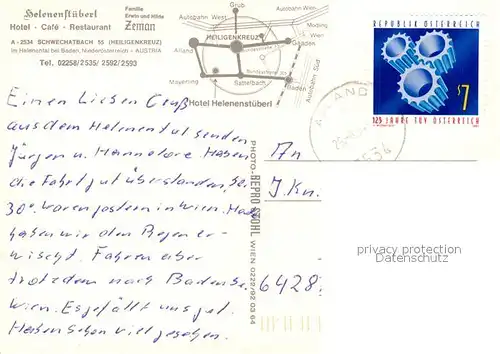 Helenenstüberl
Hotel · Café · Restaurant
Familie
Erwin und Hilde
Zeman
A - 2534 SCHWECHATBACH 55 (HEILIGENKREUZ)
Im Helenental bei Baden, Niederösterreich - AUSTRIA
Tel. 02258/2535/ 2592/2593
Autobahn West
Grub
Autobahn Wien
Mödling
Wien
Gaaden
HEILIGENKREUZ
Alland
Autobahn Süd
Mayerling
Sattelbach
Baden
Hotel Helenenstüberl
REPUBLIK ÖSTERREICH
S7
125 JAHRE TÜV ÖSTERREICH
Einen Lieben Gruß
aus dem Helenental senden
Jürgen u. Hannelore Haben
die Fahrt gut überstanden, bei
30° waren gestern in Wien. Heute
haben wir den Regen er-
wischt. Fahren aber
trotzdem nach Baden bei
Wien. Es gefällt uns gut.
Haben schon viel gesehen.
PHOTO-REPRO KOHL WIEN 0222/92 03 64
An
J. Kn
6428
privacy protection
Datenschutz